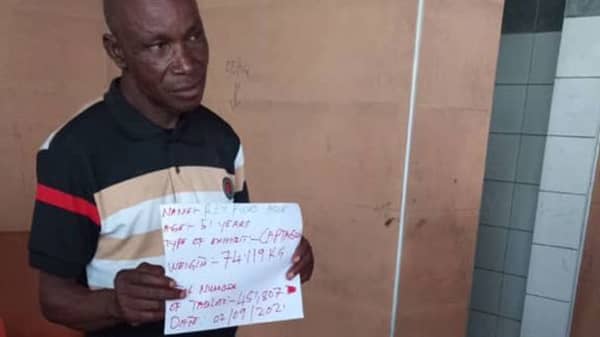 NAME:-
AGE:- 51 YEARS
TYPE OF EXHIBIT:- CAPTAGON
WEIGHT:- 74.119 KG
NUMBER
OF TABLETS:- 451,807
DATE: 02/09/2021